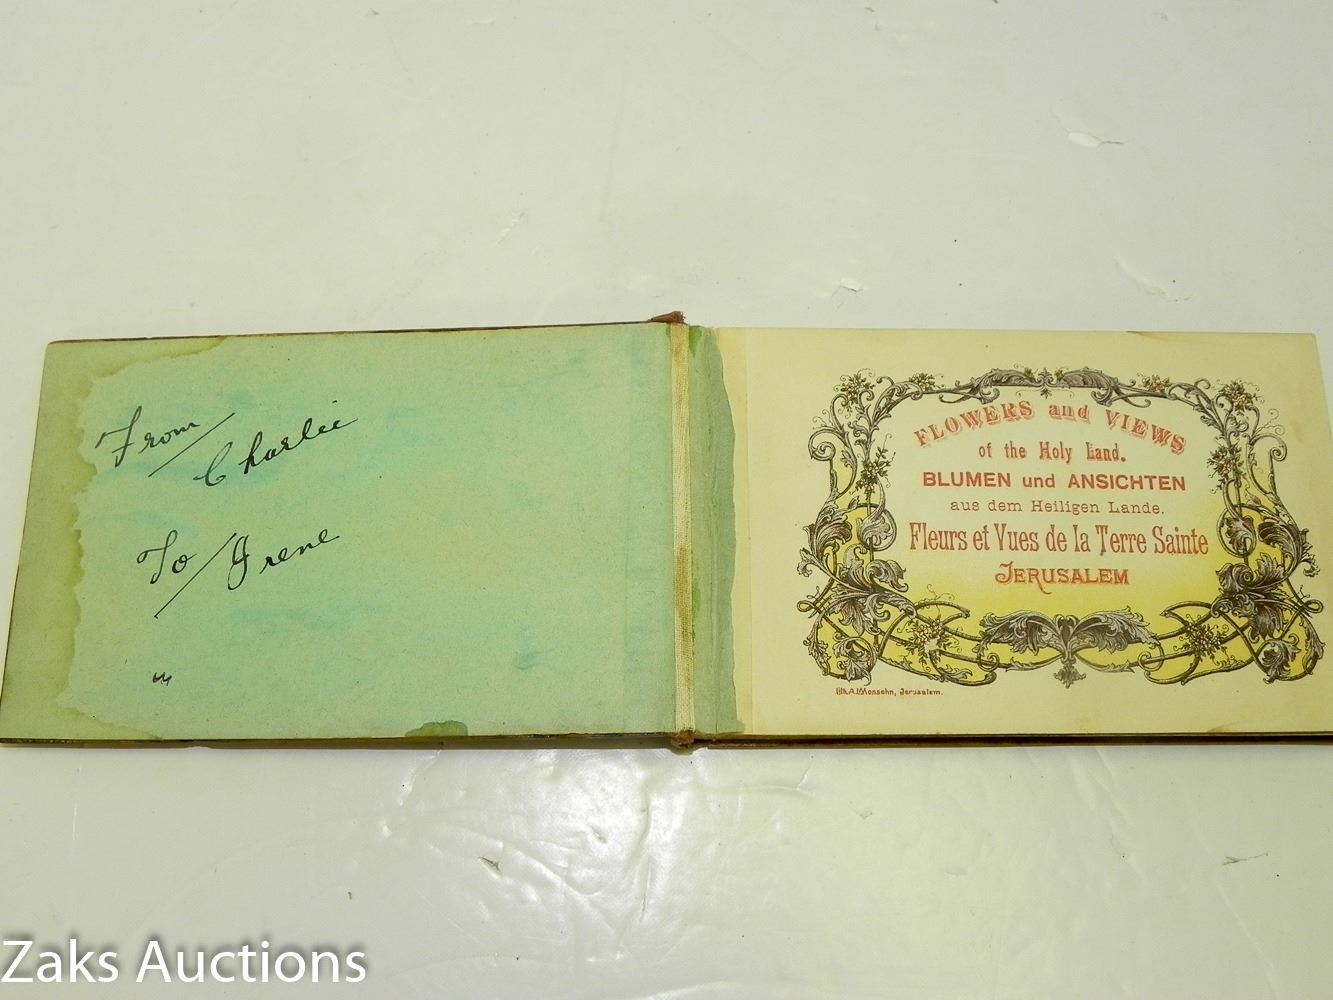 From
Charlie
To Irene
FLOWERS and VIEWS
of the Holy Land.
BLUMEN und ANSICHTEN
aus dem Heiligen Lande.
Fleurs et Vues de la Terre Sainte
JERUSALEM
Lith. A.L. Monsohn, Jerusalem.
Zaks Auctions